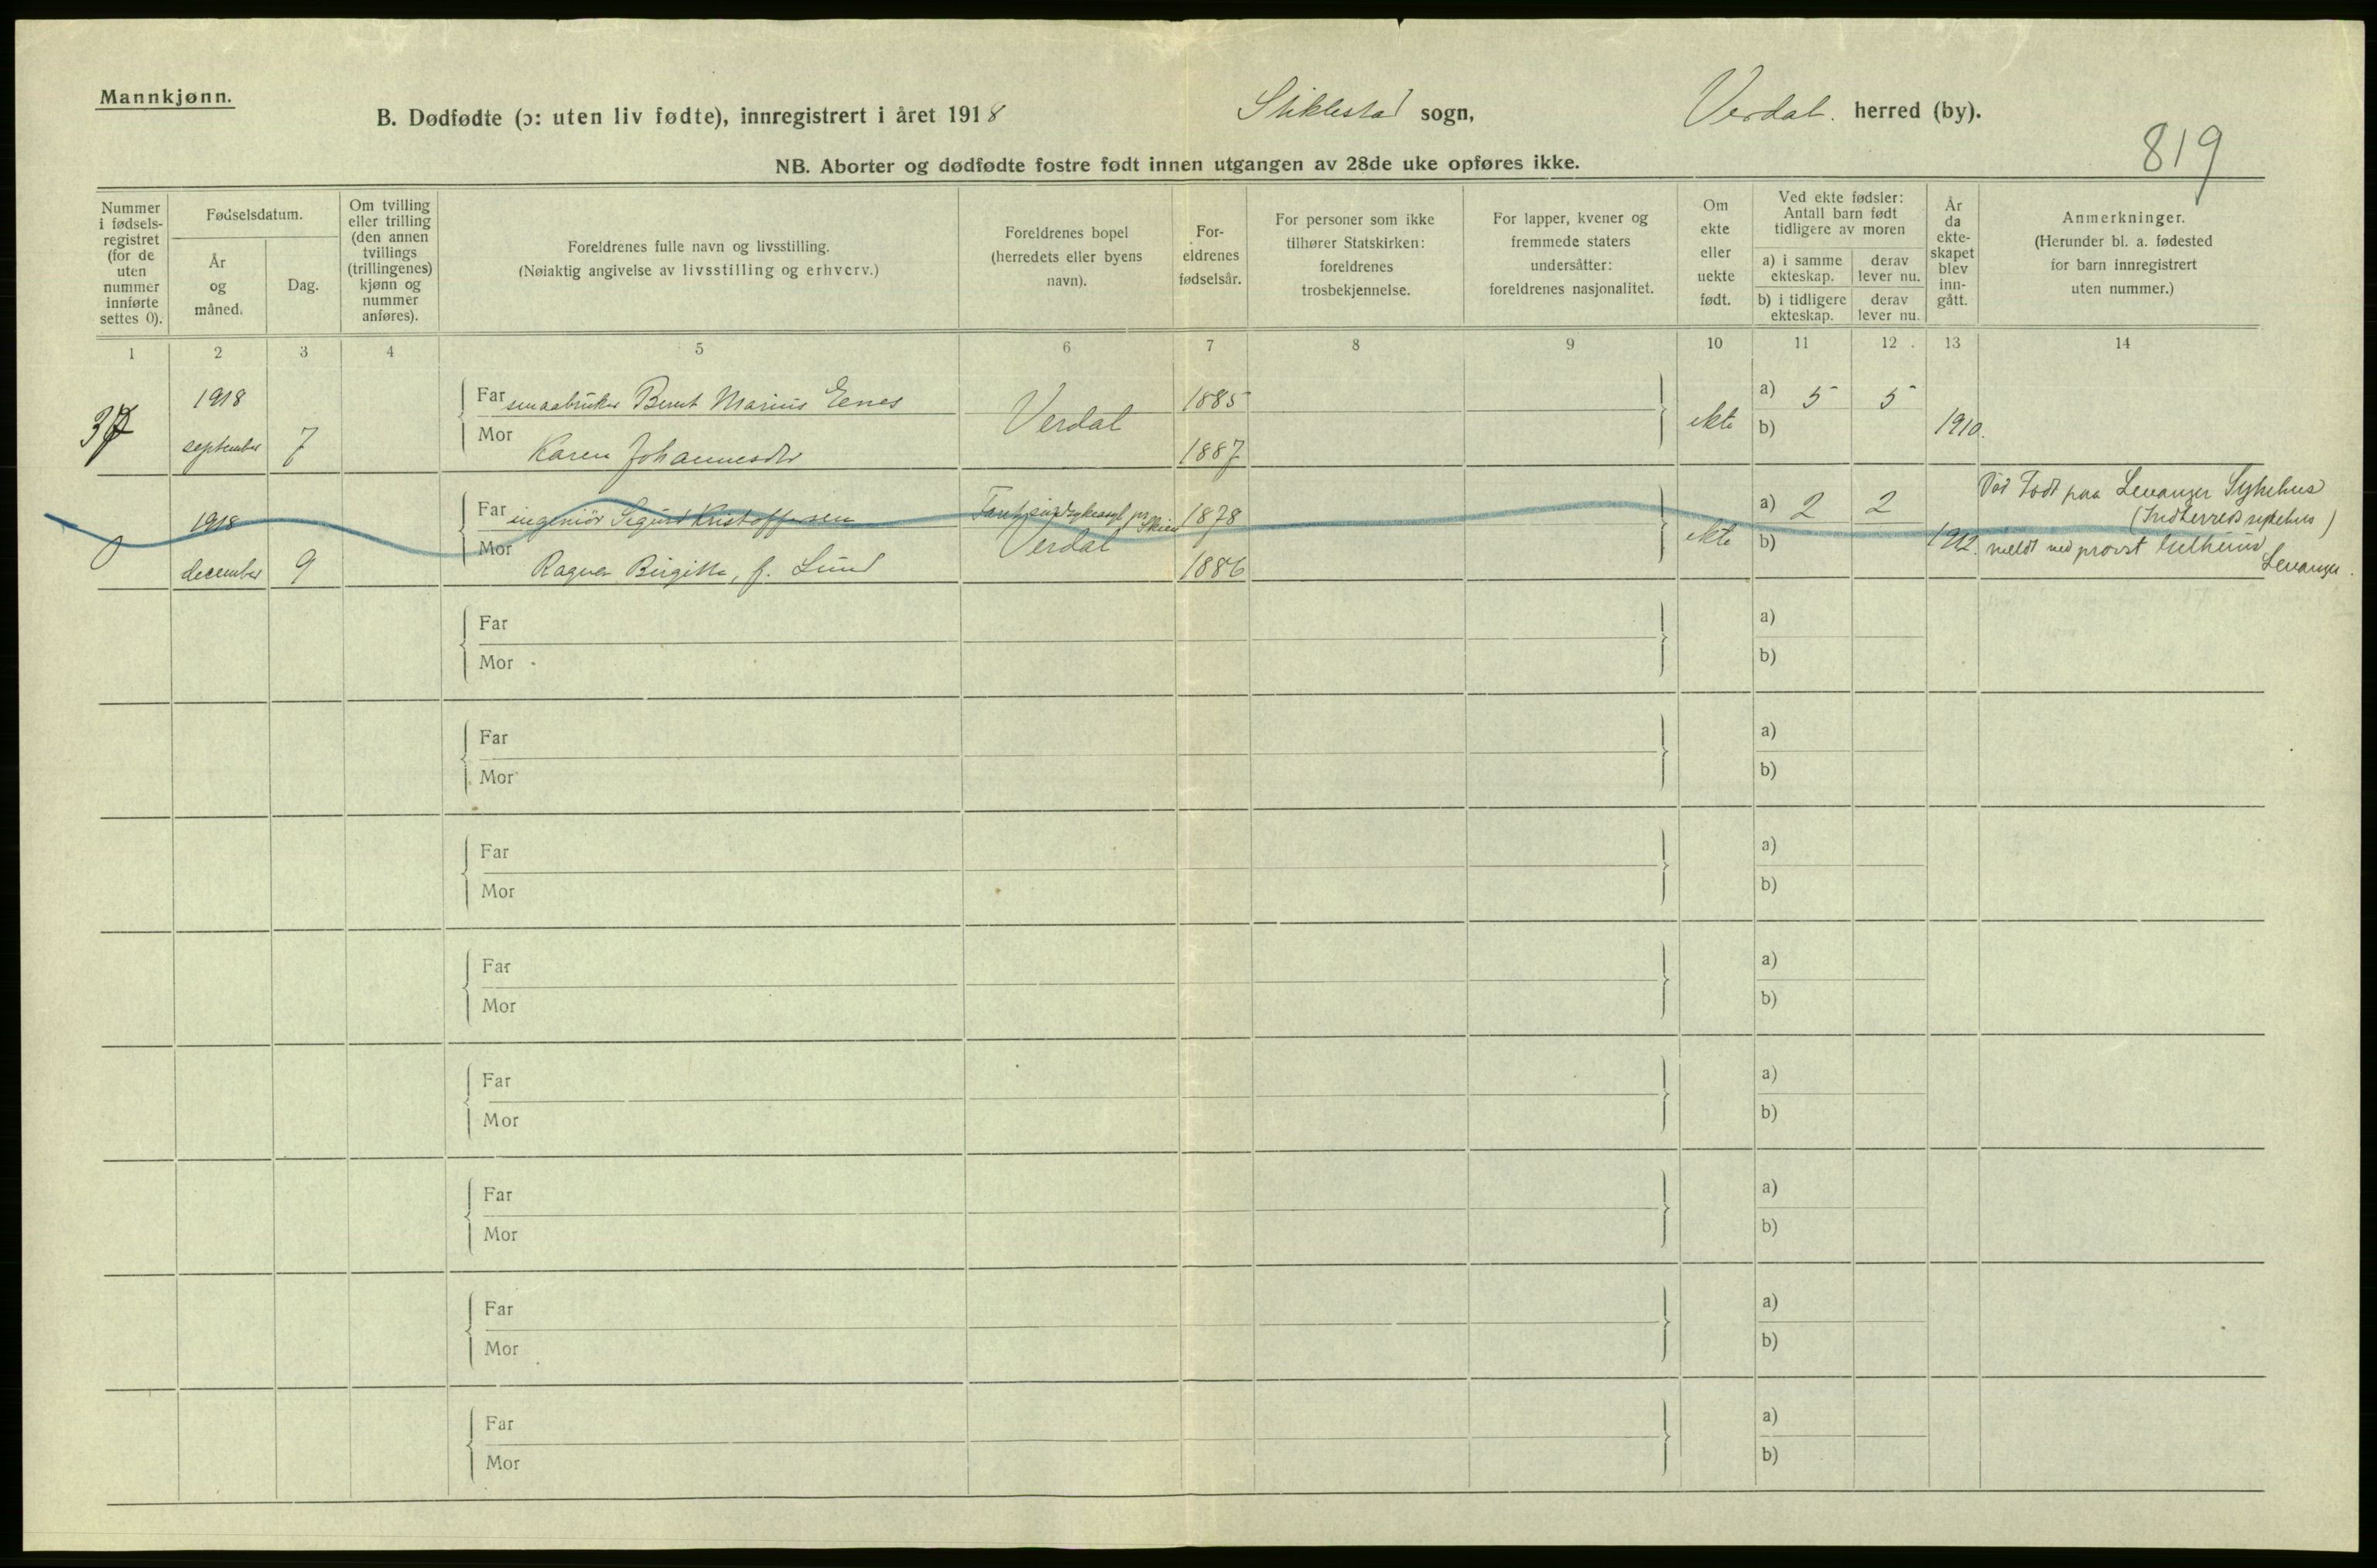 Mannkjønn.
B. Dødfødte (ɔ: uten liv fødte), innregistrert i året 1918 Stiklestad sogn, Verdal. herred (by).
819
NB. Aborter og dødfødte fostre født innen utgangen av 28de uke opføres ikke.
Nummer
i fødsels-
registret
(for de
uten
nummer
innførte
settes 0).
Fødselsdatum.
År
og
måned.
Dag.
Om tvilling
eller trilling
(den annen
tvillings
(trillingenes)
kjønn og
nummer
anføres).
Foreldrenes fulle navn og livsstilling.
(Nøiaktig angivelse av livsstilling og erhverv.)
Foreldrenes bopel
(herredets eller byens
navn).
For-
eldrenes
fødselsår.
For personer som ikke
tilhører Statskirken:
foreldrenes
trosbekjennelse.
For lapper, kvener og
fremmede staters
undersåtter:
foreldrenes nasjonalitet.
Om
ekte
eller
uekte
født.
Ved ekte fødsler:
Antall barn født
tidligere av moren
a) i samme
ekteskap.
derav
lever nu.
b) i tidligere
ekteskap.
derav
lever nu.
År
da
ekte-
skapet
blev
inn-
gått.
Anmerkninger.
(Herunder bl. a. fødested
for barn innregistrert
uten nummer.)
1 2 3 4 5 6 7 8 9 10 11 12 13 14
1918
september 7
Far smaabruker Bernt Marius Eenes
Mor Karen Johannesdtr
Verdal
1885
1887
ekte
a) 5 5
b)
1910.
0
1918
december 9
Far ingeniör Sigurd Kristoffersen
Mor Ragna Birgitte, f. Lund
pr Skien
Verdal
1878
1886
ekte
a) 2 2
b)
1912.
Född paa Levanger Sykehus
(Indherreds sykehus)
meldt ved provst
Levanger.
Far
Mor
a)
b)
Far
Mor
a)
b)
Far
Mor
a)
b)
Far
Mor
a)
b)
Far
Mor
a)
b)
Far
Mor
a)
b)
Far
Mor
a)
b)
Far
Mor
a)
b)